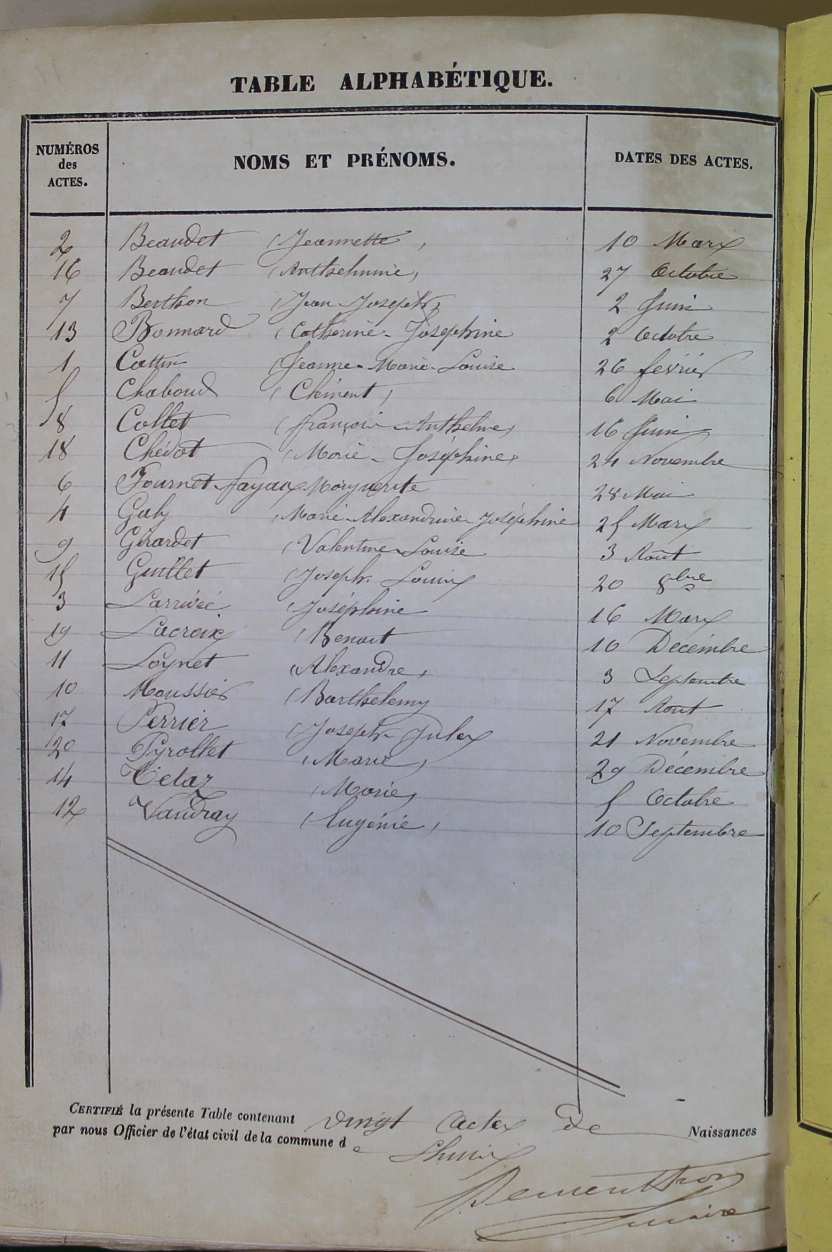 TABLE ALPHABÉTIQUE.
NUMÉROS des ACTES. NOMS ET PRÉNOMS. DATES DES ACTES.
2 Beaudet (Jeannette, 10 Mars
16 Beaudet (Anthelmine, 27 Octobre
7 Berthon (Jean Joseph, 2 Juin
13 Bonnard (Catherine Joséphine 2 Octobre
1 Cattin (Jeanne-Marie-Louise 26 février
5 Chaboud (Clément, 6 Mai
8 Collet (françois Anthelme, 16 Juin
18 Chévot (Marie-Joséphine, 24 Novembre
6 Fournet-fayas Marguerite 28 Mai
4 Guby (Marie Alexandrine Joséphine 25 Mars
9 Girardet (Valentine Louise 3 Août
15 Guillet (Joseph Louis 20 8bre
3 Larrivé (Joséphine 16 Mars
19 Lacroix (Benoit 10 Décembre
11 Loynet (Alexandre, 3 Septembre
10 Moussier (Barthelemy 17 Aout
17 Perrier (Joseph Jules 21 Novembre
20 Pyrollet (Marie, 29 Décembre
14 Tetaz (Marie, 5 Octobre
12 Vaudray (Eugénie, 10 Septembre
CERTIFIÉ la présente Table contenant vingt actes de Naissances
par nous Officier de l'état civil de la commune de
maire